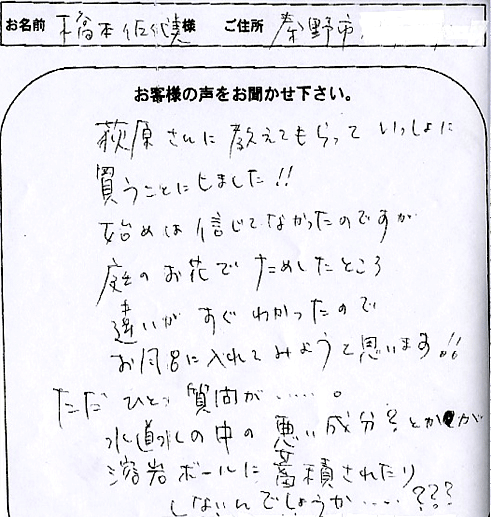 お名前 橋本佐僕様 ご住所 秦野市
お客様の声をお聞かせ下さい。
萩原さんに教えてもらって いっしょに
買うことにしました!!
始めは信じてなかったのですが
庭のお花でためしたところ
違いがすぐわかったので
お風呂に入れてみようと思います!!
ただひとつ質問が.....。
水道水の中の悪い成分?とかが
溶岩ボールに蓄積されたり
しないんでしょうか....???